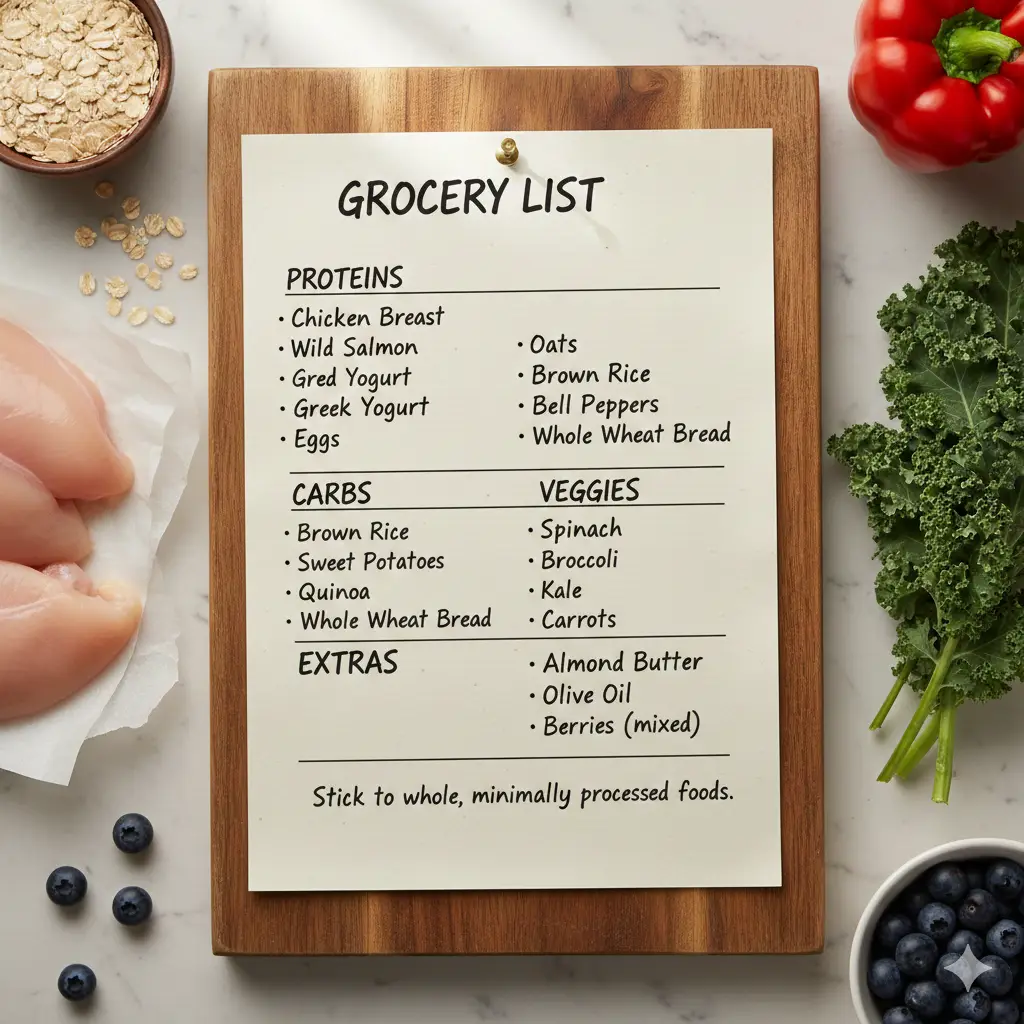 GROCERY LIST
PROTEINS
• Chicken Breast
• Wild Salmon
• Gred Yogurt
• Greek Yogurt
• Eggs
• Oats
• Brown Rice
• Bell Peppers
• Whole Wheat Bread
CARBS
• Brown Rice
• Sweet Potatoes
• Quinoa
• Whole Wheat Bread
VEGGIES
• Spinach
• Broccoli
• Kale
• Carrots
EXTRAS
• Almond Butter
• Olive Oil
• Berries (mixed)
Stick to whole, minimally processed foods.